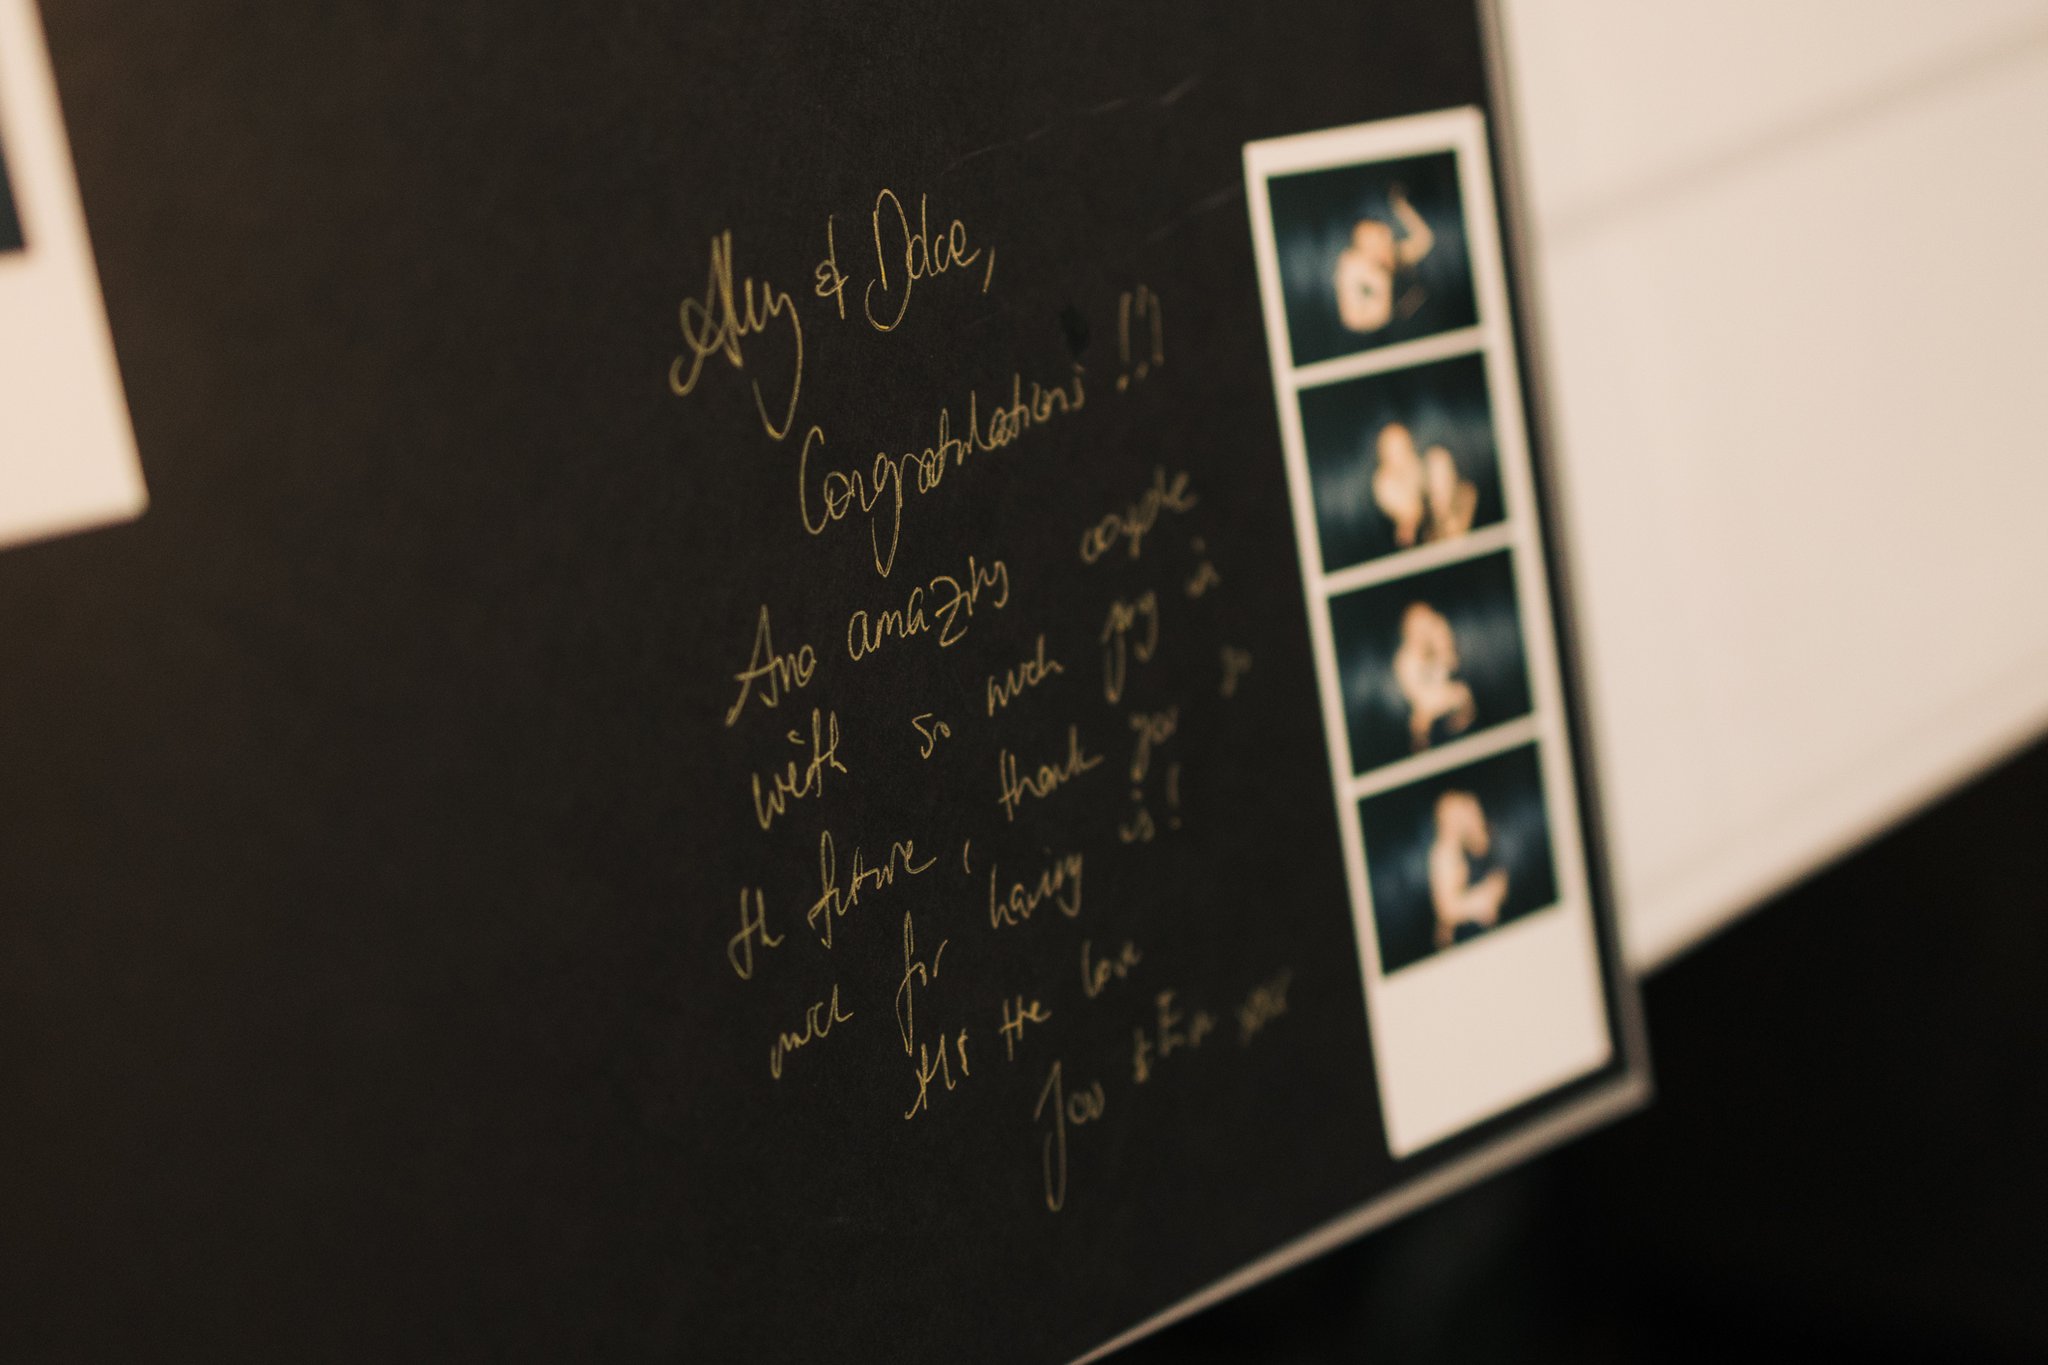 & Dolce,
Congratulations !!
amazing couple
with so much joy in
the future, thank you so
much for having us!
All the love